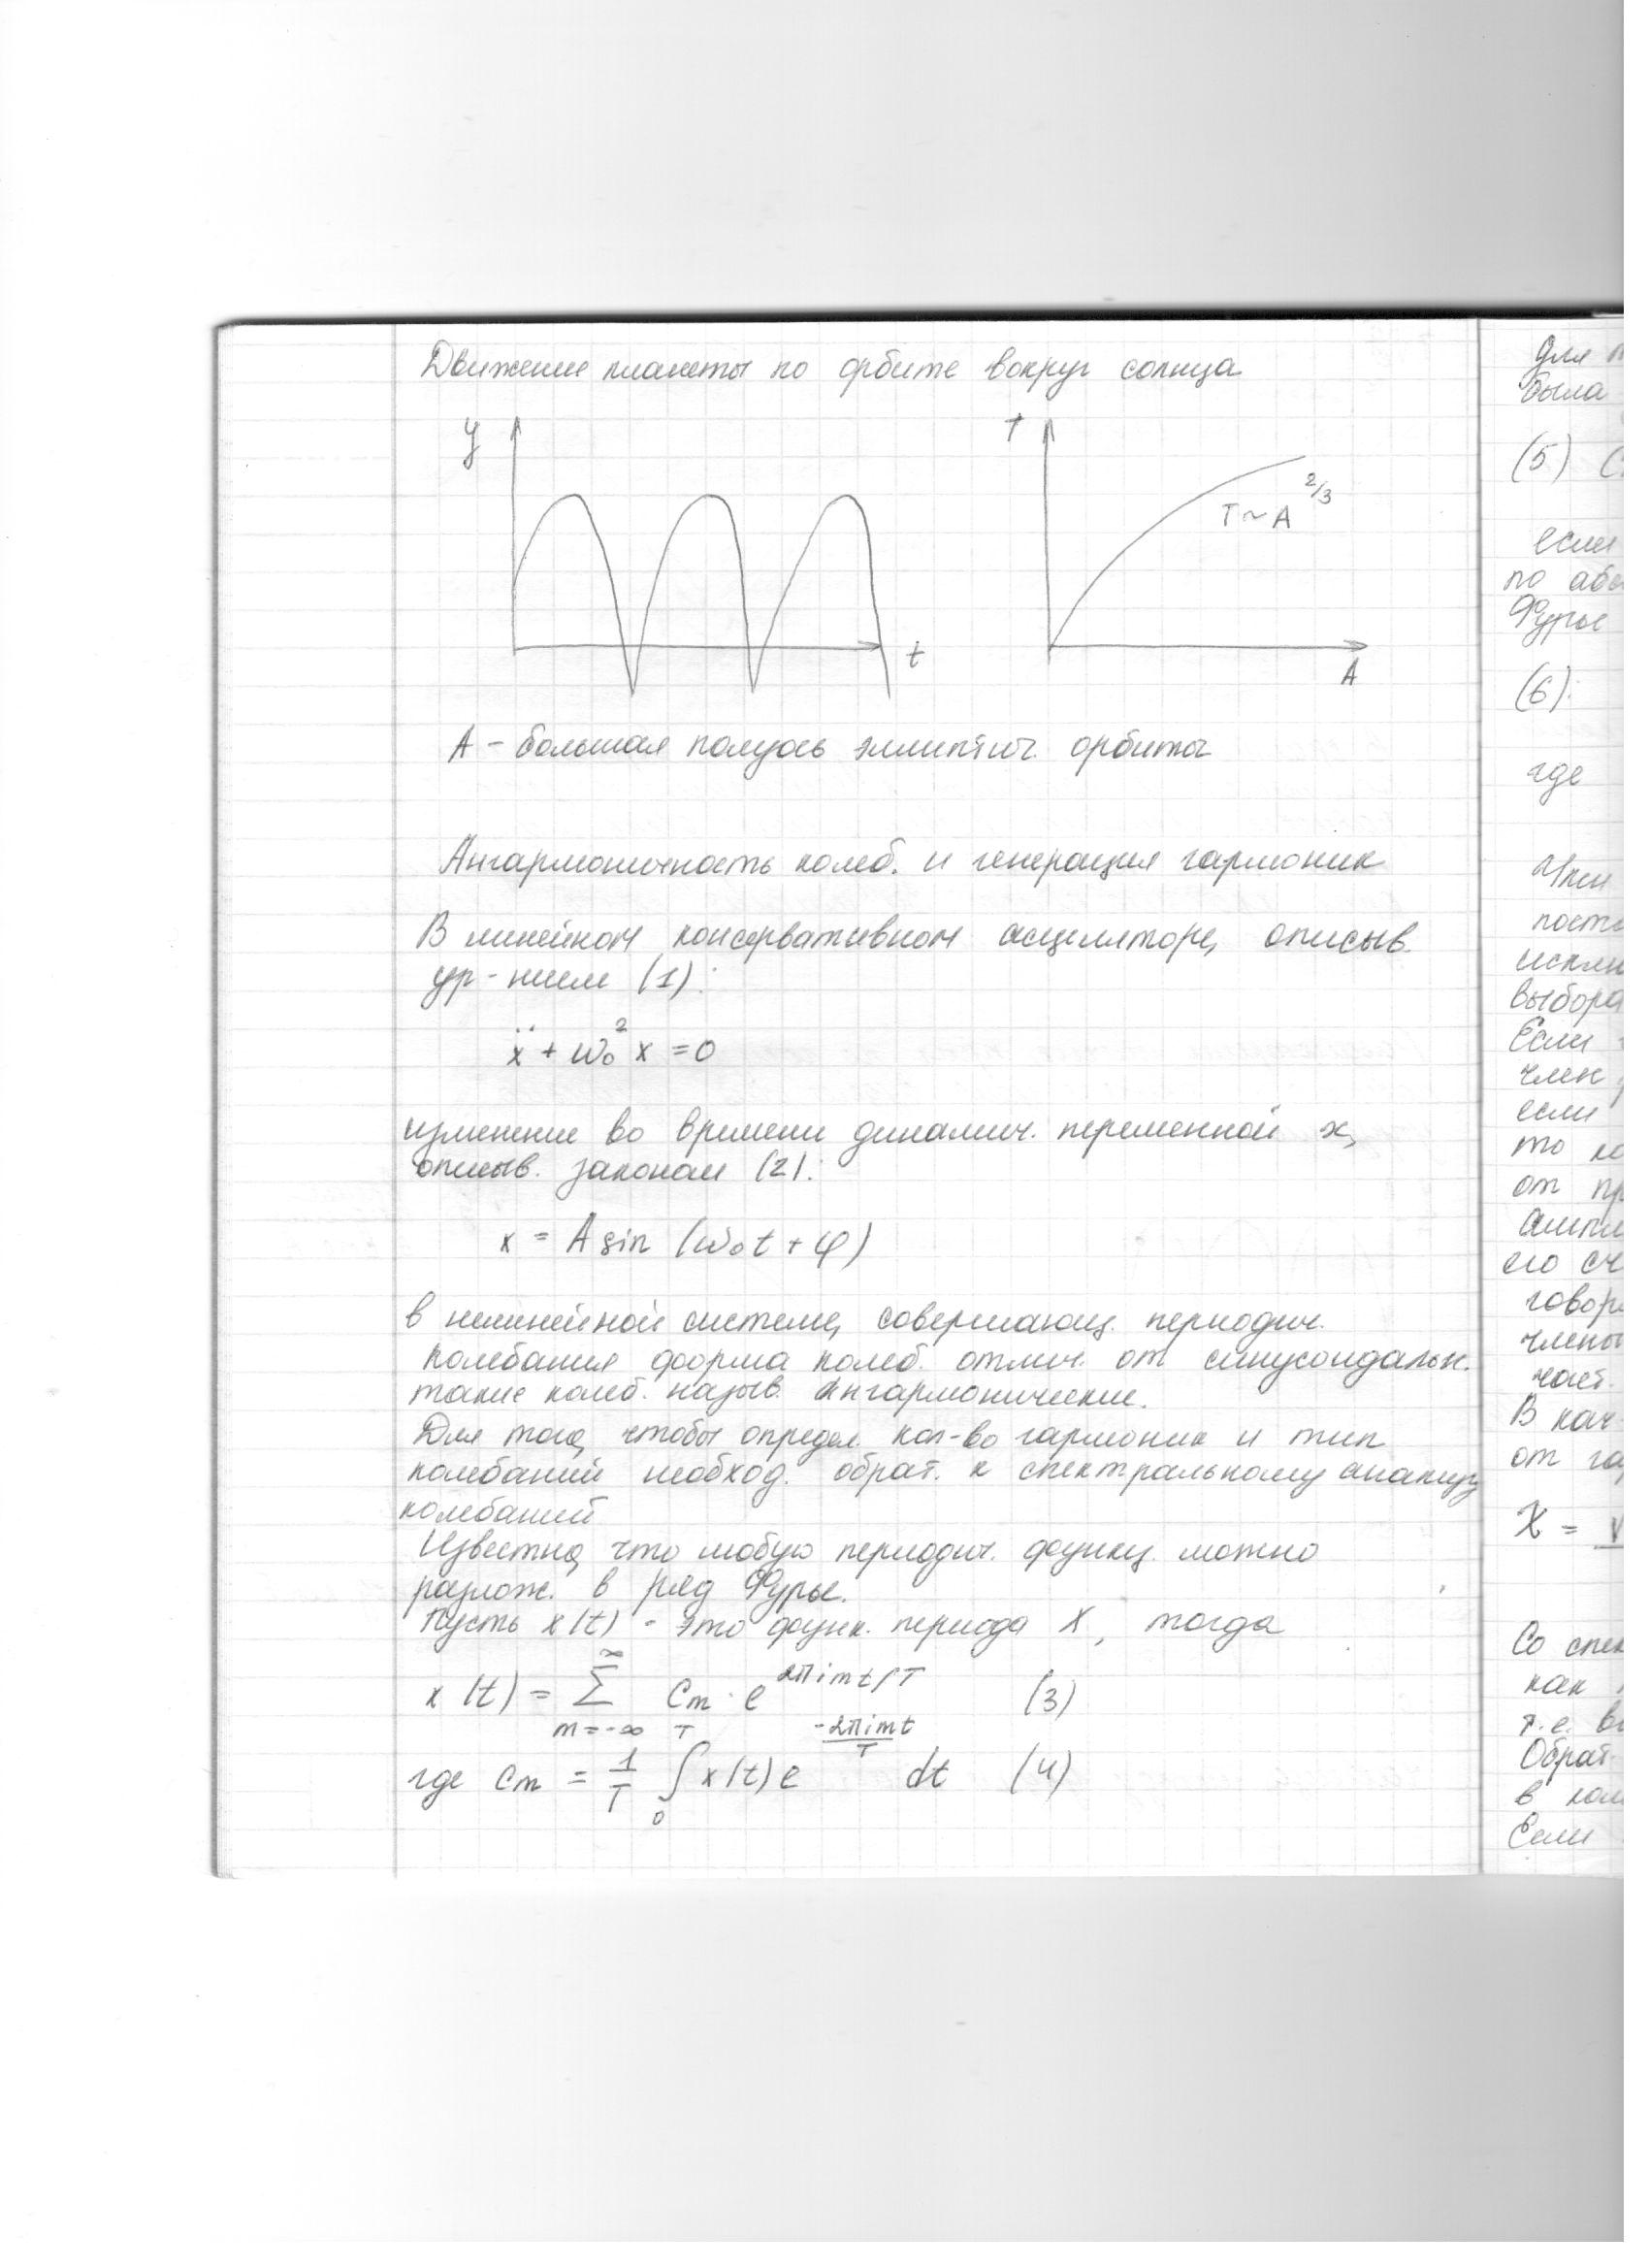 Движение планеты по орбите вокруг солнца
y
t
T
T ~ A^2/3
A
A - большая полуось эллиптич. орбиты
Ангармоничность колеб. и генерация гармоник
В линейном консервативном осцилляторе, описыв.
ур-нием (1):
ẍ + ω₀² x = 0
изменение во времени динамич. переменной x,
описыв. законом (2):
x = A sin (ω₀t + φ)
в нелинейной системе, совершающ. периодич.
колебания форма колеб. отлич. от синусоидальн.
такие колеб. назыв. ангармонические.
Для того, чтобы определ. кол-во гармоник и тип
колебаний необход. обрат. к спектральному анализу
колебаний
Известно, что любую периодич. функц. можно
разлож. в ряд Фурье.
Пусть x(t) - это функ. периода X, тогда
x(t) = ∑_{m=-∞}^{∞} Cm · e^{2πimt/T} (3)
где Cm = 1/T ∫_0^T x(t) e^{-2πimt/T} dt (4)
Для
была
(5)
если
по
Фурье
(6):
где
выбора
Если
член
если
то
от
его
члены
В кач
от
X =
Со
как
т.е.
Обрат.
в
Если